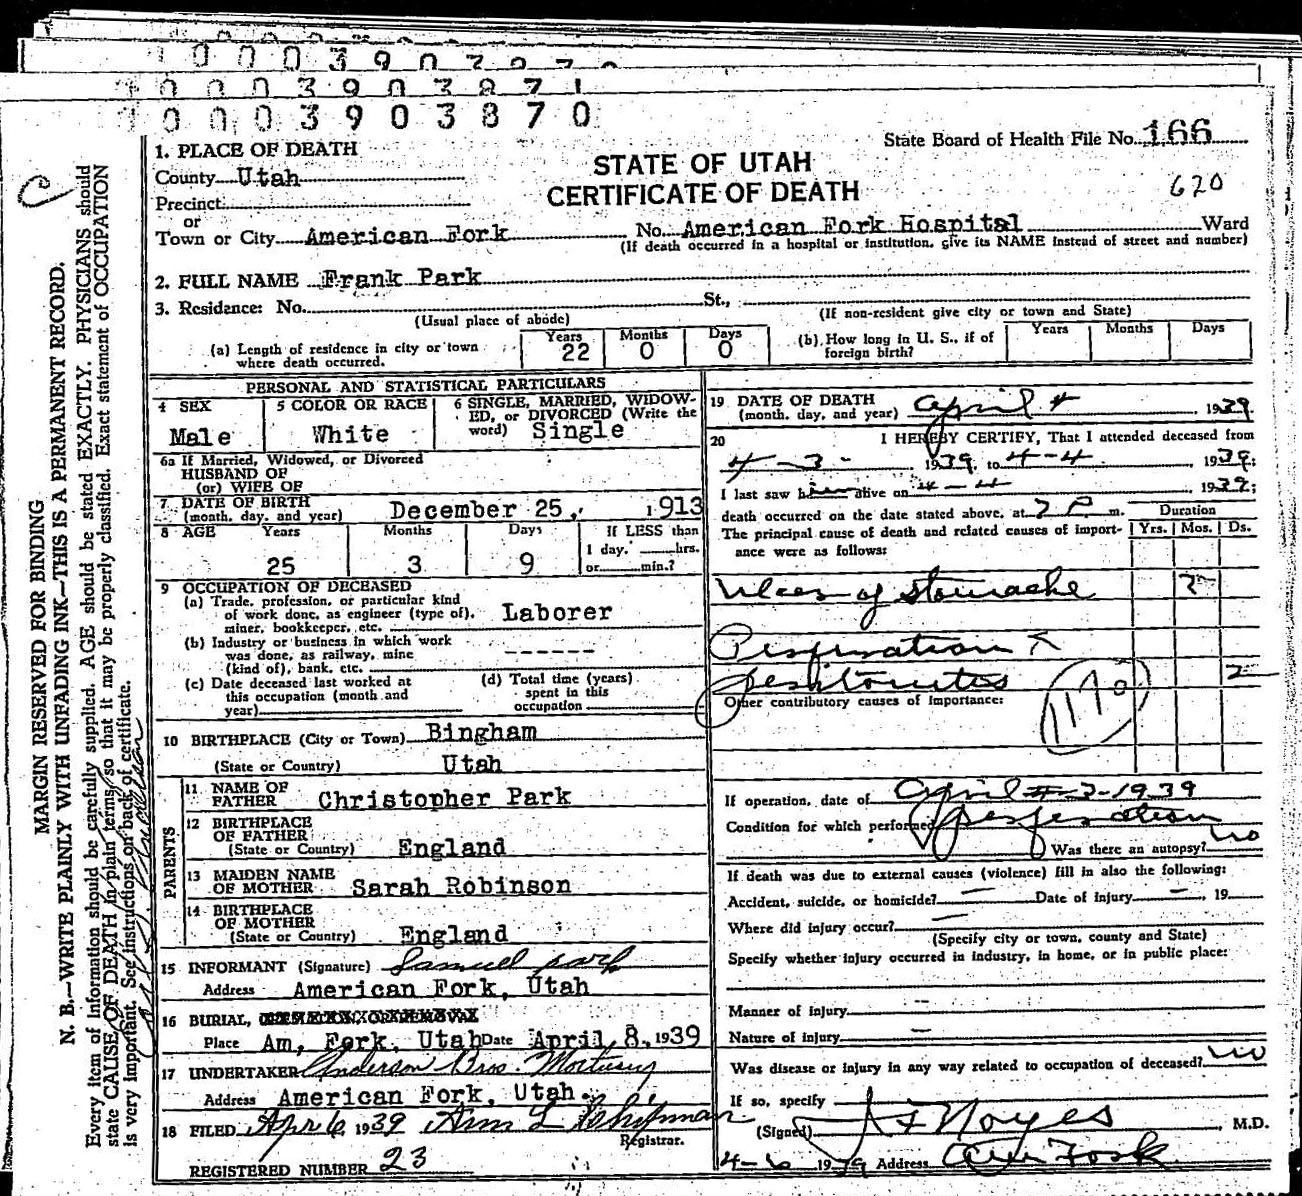 0003903871
0003903870
State Board of Health File No. 166
620
STATE OF UTAH
CERTIFICATE OF DEATH
1. PLACE OF DEATH
County Utah
Precinct
or
Town or City American Fork No. American Fork Hospital Ward
(If death occurred in a hospital or institution, give its NAME instead of street and number)
2. FULL NAME Frank Park
3. Residence: No. St.,
(Usual place of abode) (If non-resident give city or town and State)
(a) Length of residence in city or town where death occurred. Years 22 Months 0 Days 0
(b) How long in U. S., if of foreign birth? Years Months Days
PERSONAL AND STATISTICAL PARTICULARS
4 SEX Male
5 COLOR OR RACE White
6 SINGLE, MARRIED, WIDOWED, or DIVORCED (Write the word) Single
6a If Married, Widowed, or Divorced
HUSBAND OF
(or) WIFE OF
7 DATE OF BIRTH
(month, day, and year) December 25, 1913
8 AGE Years 25 Months 3 Days 9 If LESS than
1 day, hrs.
or min.?
9 OCCUPATION OF DECEASED
(a) Trade, profession, or particular kind
of work done, as engineer (type of),
miner, bookkeeper, etc. Laborer
(b) Industry or business in which work
was done, as railway, mine
(kind of), bank, etc. ------
(c) Date deceased last worked at
this occupation (month and
year)
(d) Total time (years)
spent in this
occupation
10 BIRTHPLACE (City or Town) Bingham
(State or Country) Utah
PARENTS
11 NAME OF
FATHER Christopher Park
12 BIRTHPLACE
OF FATHER
(State or Country) England
13 MAIDEN NAME
OF MOTHER Sarah Robinson
14 BIRTHPLACE
OF MOTHER
(State or Country) England
15 INFORMANT (Signature) Samuel Park
Address American Fork, Utah
16 BURIAL,
Place Am, Fork, Utah Date April 8, 1939
17 UNDERTAKER Anderson Bros. Mortuary
Address American Fork, Utah.
18 FILED Apr 6, 1939
Registrar.
REGISTERED NUMBER 23
19 DATE OF DEATH
(month, day, and year) April 4 1939
20 I HEREBY CERTIFY, That I attended deceased from
4-3- 1939, to 4-4 1939;
I last saw him alive on 4-4 1939;
death occurred on the date stated above, at 7 P m.
The principal cause of death and related causes of importance were as follows:
Duration
Yrs. Mos. Ds.
Ulcer of Stomache 2
Perforation &
peritonitis 2
Other contributory causes of importance:
If operation, date of April 3-1939
Condition for which performed perforation
Was there an autopsy? no
If death was due to external causes (violence) fill in also the following:
Accident, suicide, or homicide? — Date of injury — , 19
Where did injury occur? —
(Specify city or town, county and State)
Specify whether injury occurred in industry, in home, or in public place:
Manner of injury --
Nature of injury —
Was disease or injury in any way related to occupation of deceased? no
If so, specify
(Signed) Noyes , M.D.
4-6 1939 Address Am Fork
MARGIN RESERVED FOR BINDING
N. B.—WRITE PLAINLY WITH UNFADING INK—THIS IS A PERMANENT RECORD.
Every item of information should be carefully supplied. AGE should be stated EXACTLY. PHYSICIANS should
state CAUSE OF DEATH in plain terms, so that it may be properly classified. Exact statement of OCCUPATION
is very important. See instructions on back of certificate.